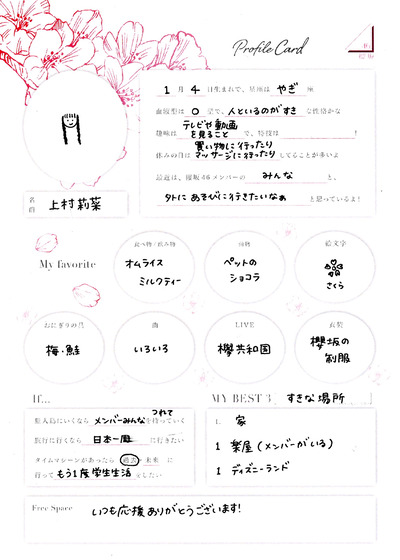 Profile Card
1月4日生まれで、星座はやぎ座
血液型はO型で、人といるのがすきな性格かな
趣味はテレビや動画を見ることで、特技は!
休みの日は買い物に行ったりマッサージに行ったりしてることが多いよ
最近は、欅坂46メンバーのみんなと、
外にあそびに行きたいなぁと思っているよ!
名前 上村莉菜
My favorite
食べ物/飲み物
オムライス
ミルクティー
動物
ペットの
ショコラ
絵文字
さくら
おにぎりの具
梅・鮭
曲
いろいろ
LIVE
欅共和国
衣装
櫻坂の
制服
If...
無人島にいくならメンバーみんなつれてを持っていく
旅行に行くなら日本一周に行きたい
タイムマシーンがあったら過去・未来に
行ってもう1度学生生活をしたい
MY BEST 3 すきな場所
1. 家
1 楽屋(メンバーがいる)
1 ディズニーランド
Free Space
いつも応援ありがとうございます!